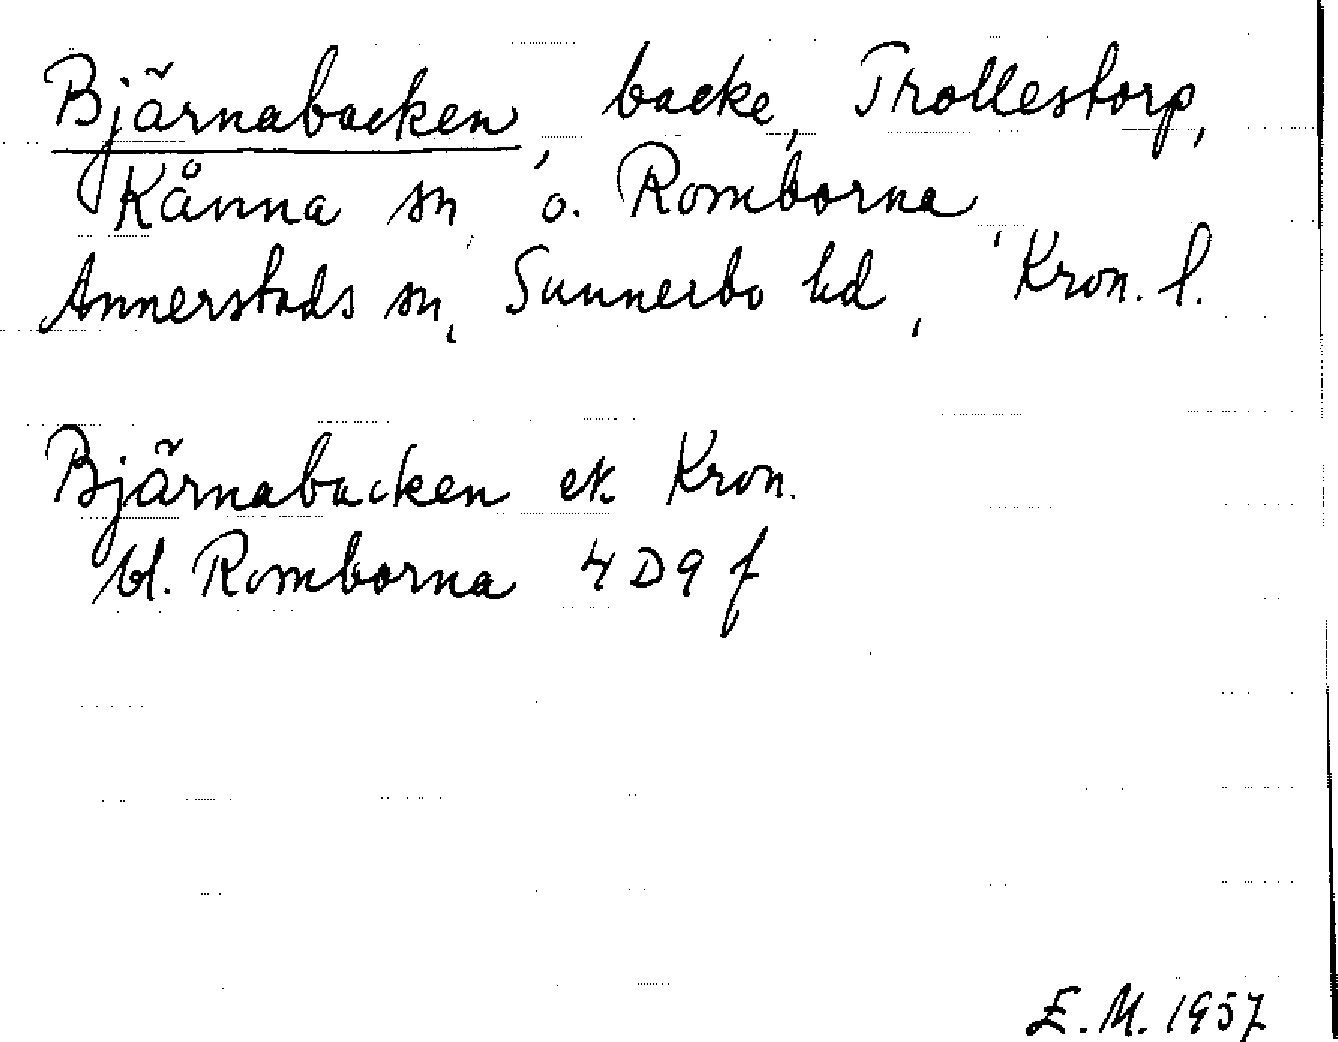 Bjärnabacken, backe, Trollestorp,
Kånna sn, o. Romborna,
Annerstads sn, Sunnerbo hd, Kron. l.
Bjärnabacken ek Kron.
bl. Romborna 4D9f
E.M. 1957